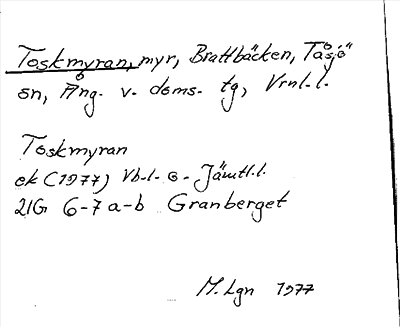 Toskmyran, myr, Brattbäcken, Tåsjö
sn, Ång. v. doms. tg, Vrnl. l.
Toskmyran
ek (1977) Vb. l. o. Jämtl. l.
21G 6-7 a-b Granberget
M. Lgn 1977